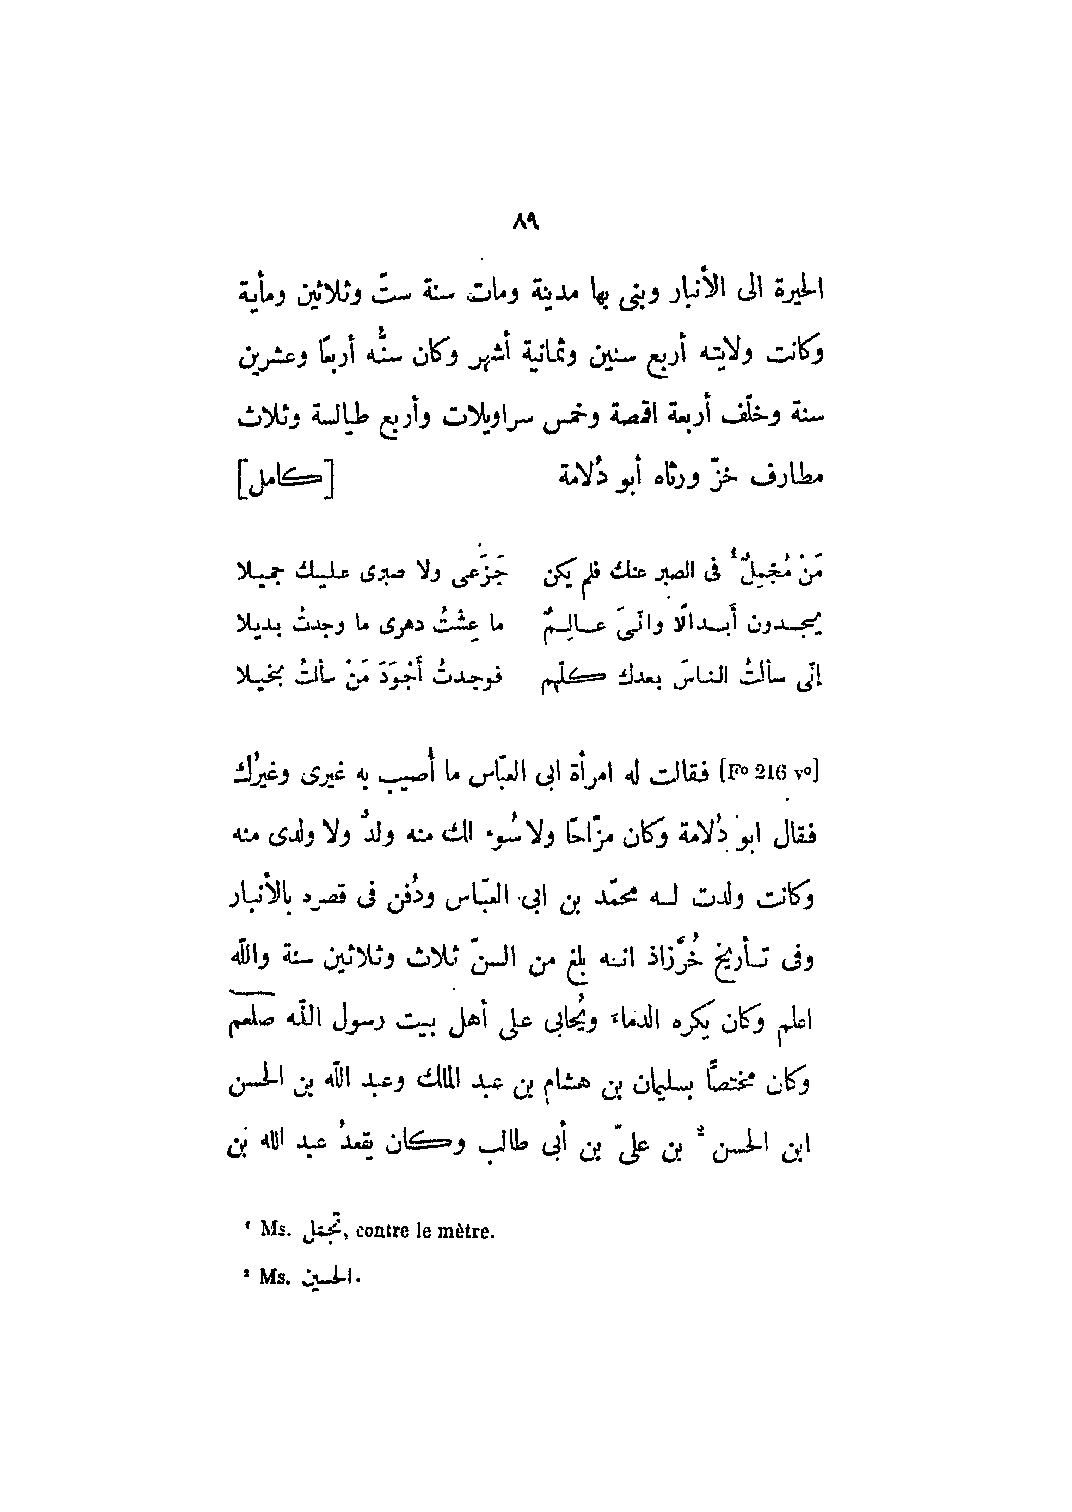 ٨٩
الحيرة الى الأنبار وبنى بها مدينة ومات سنة ستّ وثلاثين ومأية
وكانت ولايته أربع سنين وثمانية أشهر وكان سنُّه أربعًا وعشرين
سنة وخلّف أربعة اقمصة وخمس سراويلات وأربع طيالسة وثلاث
مطارف خزّ ورثاه أبو دُلامة [كامل]
مَنْ مُجْمِلٌ¹ فى الصبر عنك فلم يكن جَزَعى ولا صبرى عليك جميلا
يجدون أبدالًا وانّىَ عالِمٌ ما عِشْتُ دهرى ما وجدتُ بديلا
إنّى سألتُ الناسَ بعدك كلّهم فوجدتُ أجْوَدَ مَنْ سألتُ بخيلا
[Fo 216 vo] فقالت له امرأة ابى العبّاس ما أُصيب به غيرى وغيرُك
فقال ابو دُلامة وكان مزّاحًا ولا سُوء لك منه ولدٌ ولا ولدى منه
وكانت ولدت له محمّد بن ابى العبّاس ودُفن فى قصره بالأنبار
وفى تأريخ خُرَّزاذ انه بلغ من السنّ ثلاث وثلاثين سنة واللّه
اعلم وكان يكره الدماءَ ويُحابى على أهل بيت رسول اللّه صلعم
وكان مختصًّا بسليمان بن هشام بن عبد الملك وعبد اللّه بن الحسن
ابن الحسن² بن علىّ بن أبى طالب وكان يقعدُ عبد الله بن
¹ Ms. تجمّل, contre le mètre.
² Ms. الحسين.